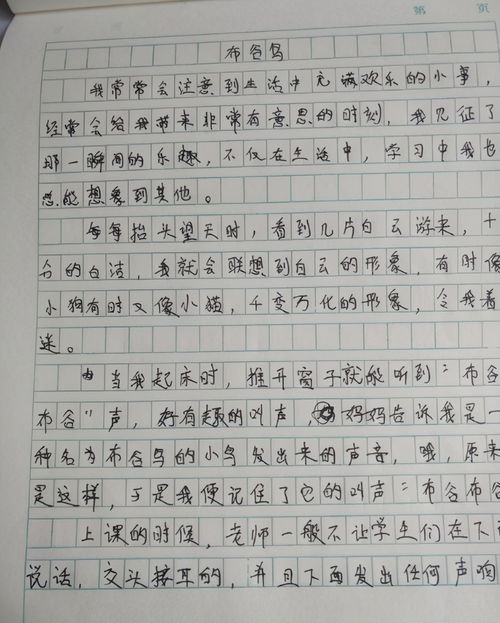 第 页
布谷鸟
我常常会注意到生活中充满欢乐的小事，
经常会给我带来非常有意思的时刻，我见证了
那一瞬间的乐趣，不仅在生活中，学习中我也
总能想象到其他。
每每抬头望天时，看到几片白云游来，十
分的白洁，我就会联想到白云的形象，有时像
小狗有时又像小猫，千变万化的形象，令我着
迷。
当我起床时，推开窗子就能听到："布谷
布谷"声，好有趣的叫声，妈妈告诉我是一
种名为布谷鸟的小鸟发出来的声音，哦，原来
是这样，于是我便记住了它的叫声：布谷布谷
上课的时候，老师一般不让学生们在下面
说话，交头接耳的，并且下面发出任何声响